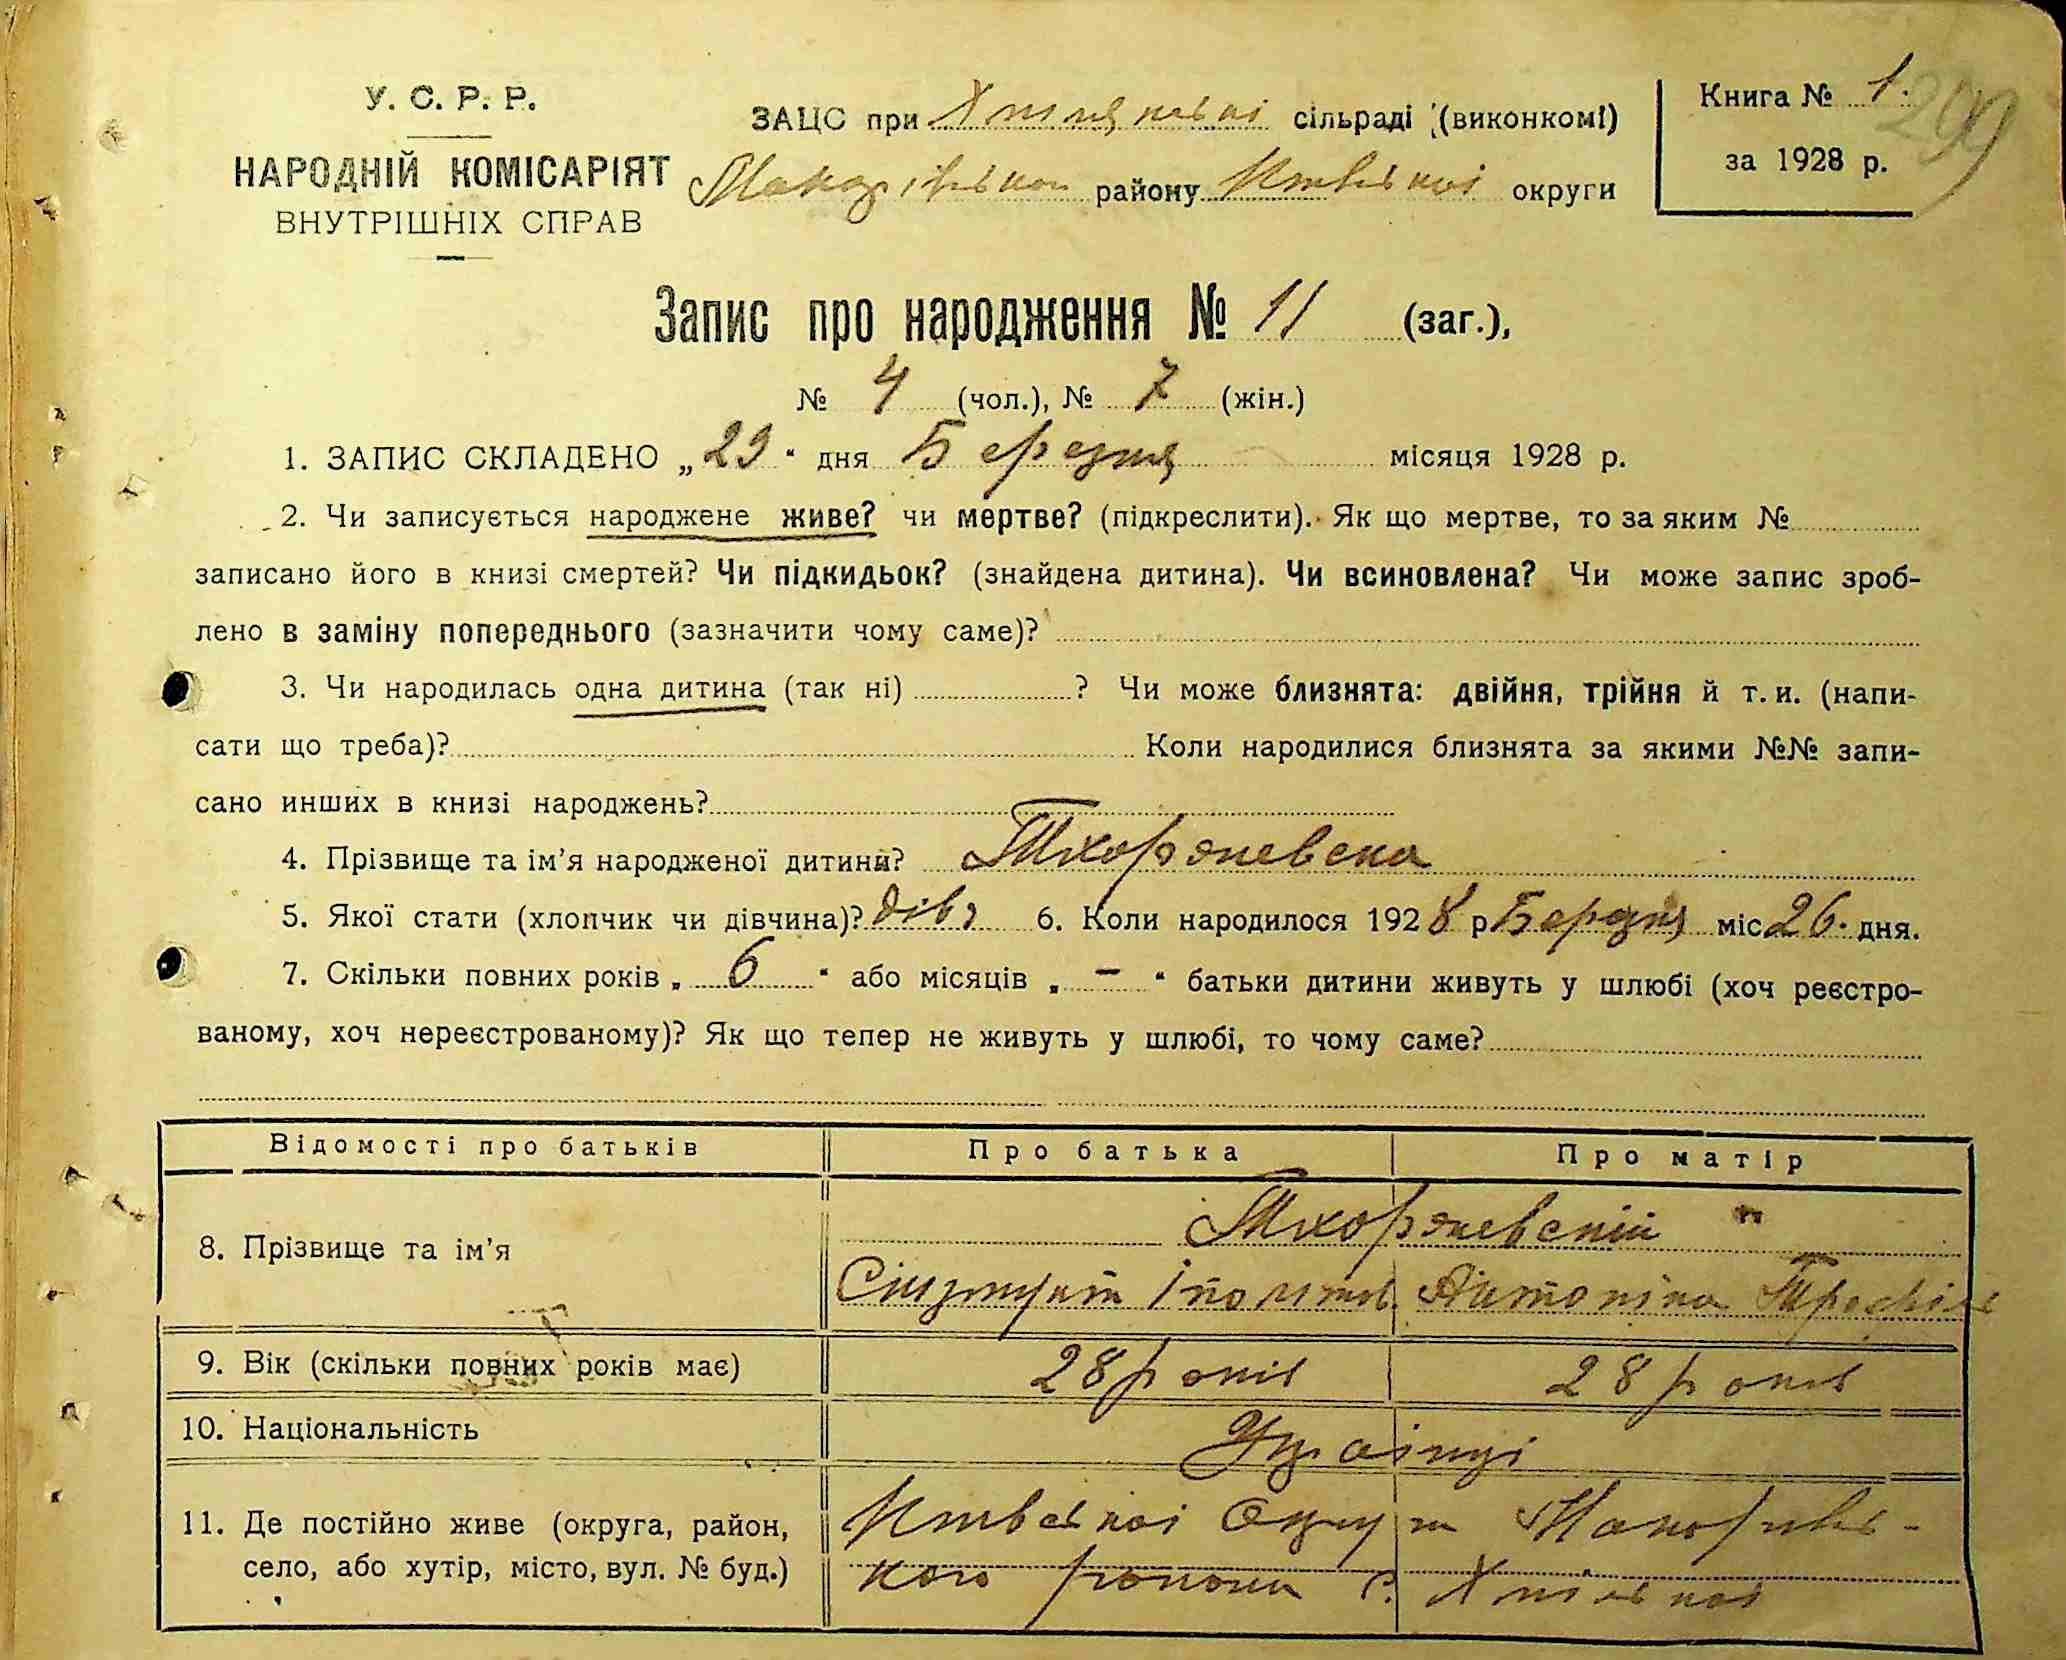 У. С. Р. Р.
НАРОДНІЙ КОМІСАРІЯТ
ВНУТРІШНІХ СПРАВ
ЗАЦС при сільраді (виконкомі)
району округи
Книга № 1.
за 1928 р.
299
Запис про народження № 11 (заг.),
№ 4 (чол.), № 7 (жін.)
1. ЗАПИС СКЛАДЕНО „29“ дня Березня місяця 1928 р.
2. Чи записується народжене живе? чи мертве? (підкреслити). Як що мертве, то за яким №
записано його в книзі смертей? Чи підкидьок? (знайдена дитина). Чи всиновлена? Чи може запис зроб-
лено в заміну попереднього (зазначити чому саме)?
3. Чи народилась одна дитина (так ні) ? Чи може близнята: двійня, трійня й т. и. (напи-
сати що треба)? Коли народилися близнята за якими №№ запи-
сано инших в книзі народжень?
4. Прізвище та ім’я народженої дитини? Тхоржевска
5. Якої стати (хлопчик чи дівчина)? дівч 6. Коли народилося 1928 р Березня міс 26. дня.
7. Скільки повних років „ 6 “ або місяців „ – “ батьки дитини живуть у шлюбі (хоч реєстро-
ваному, хоч нереєстрованому)? Як що тепер не живуть у шлюбі, то чому саме?
Відомості про батьків Про батька Про матір
8. Прізвище та ім’я Тхоржевскій "
Антоніна
9. Вік (скільки повних років має) 28 років 28 років
10. Національність Українці
11. Де постійно живе (округа, район,
село, або хутір, місто, вул. № буд.)
Округи
кого району с.